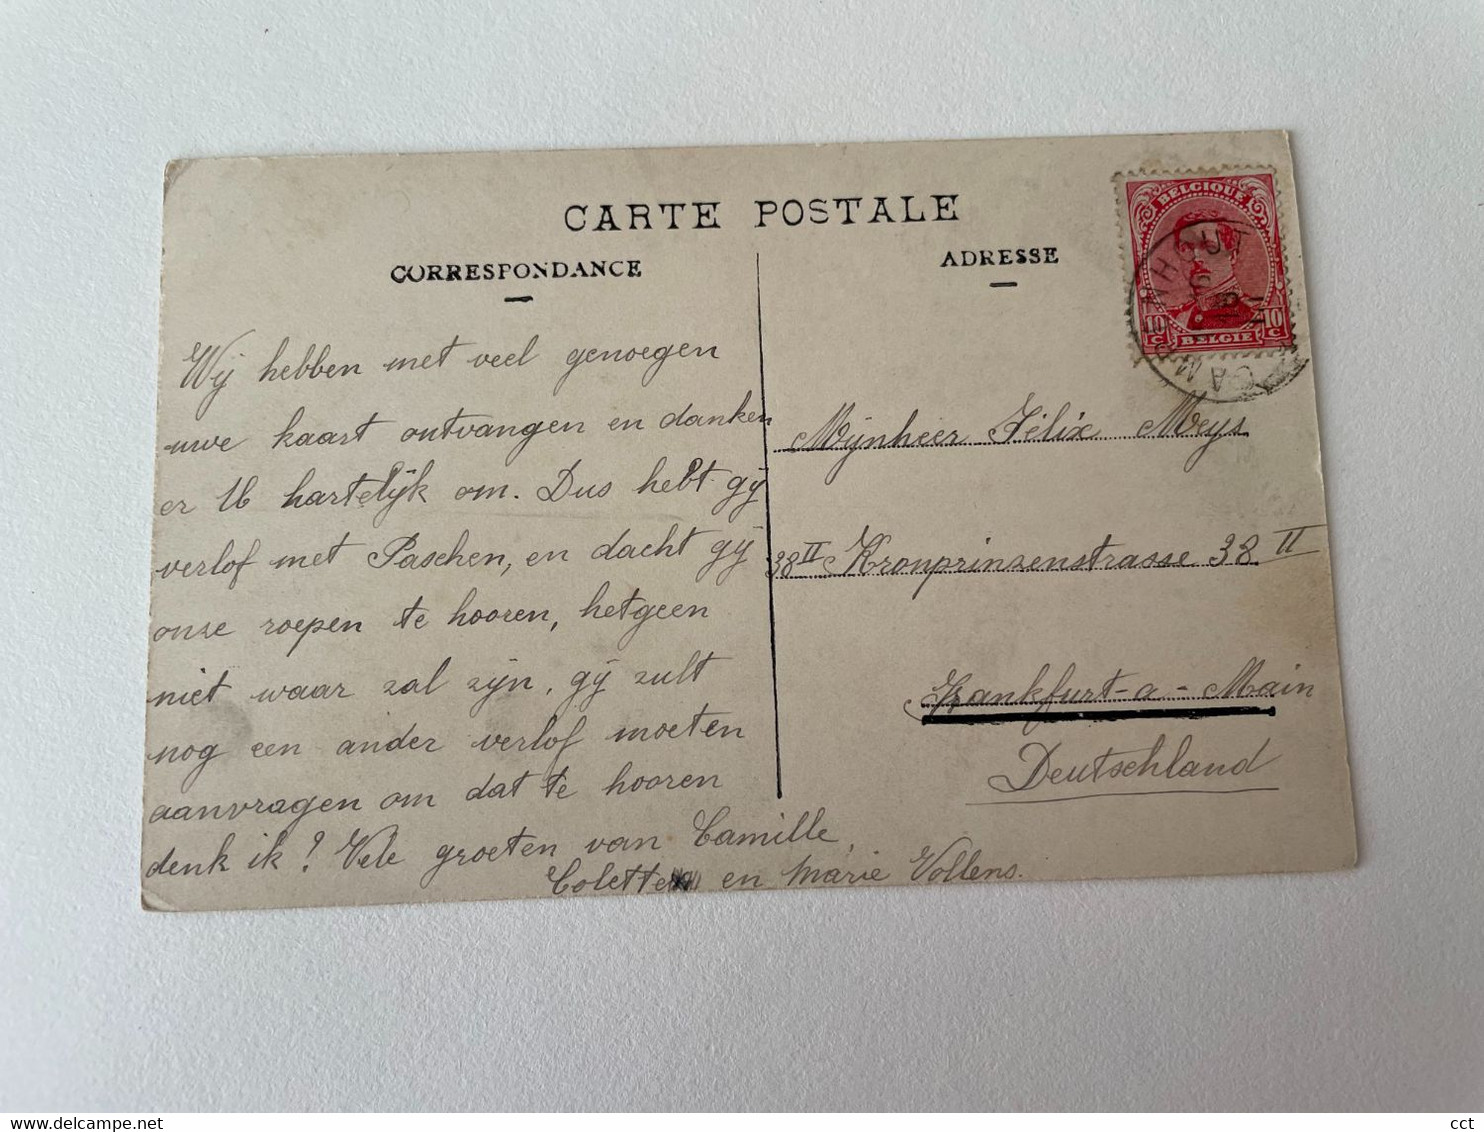 CARTE POSTALE
CORRESPONDANCE
ADRESSE
BELGIQUE
10 C
10 C
BELGIË
Wij hebben met veel genoegen
uwe kaart ontvangen en danken
er U hartelijk om. Dus hebt gij
verlof met Paschen, en dacht gij
onze roepen te hooren, hetgeen
niet waar zal zijn, gij zult
nog een ander verlof moeten
aanvragen om dat te hooren
denk ik? Vele groeten van Camille,
Colette en Marie Vollens.
Mijnheer Félix Meys
38 II Kronprinzenstrasse 38 II
Frankfurt-a-Main
Deutschland
cct